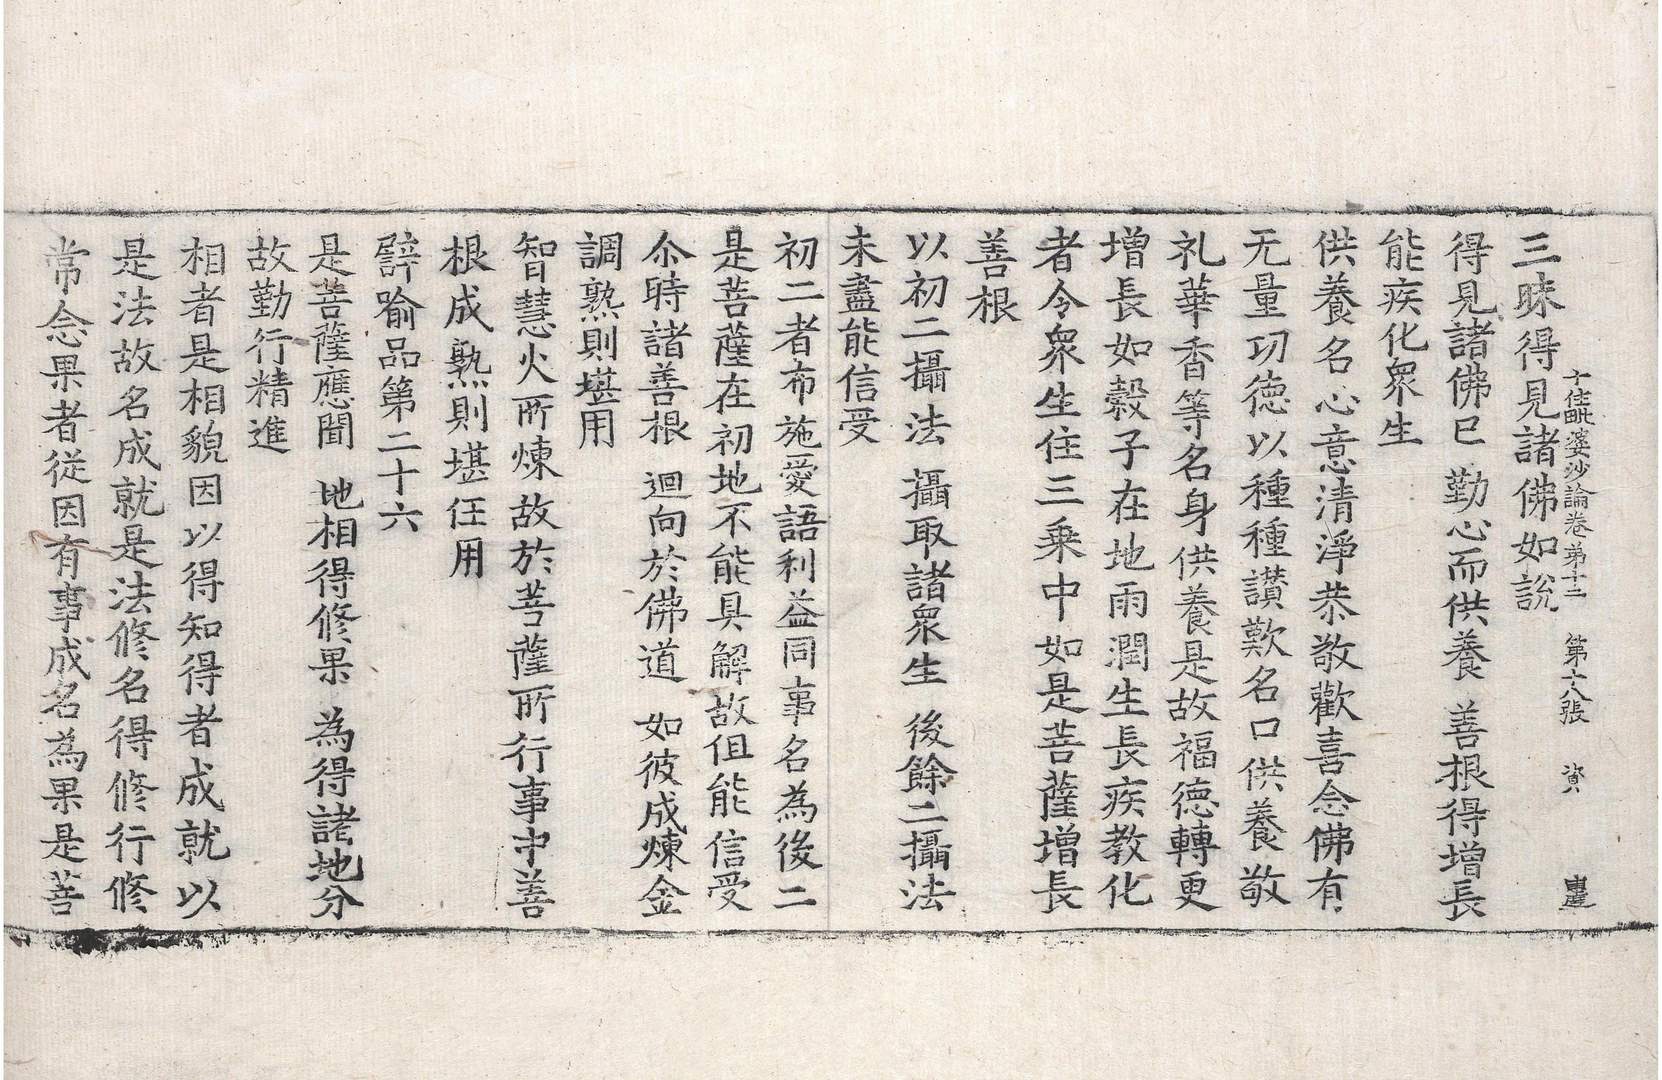 十住毗婆沙論卷第十三　第十八張　資
三昧得見諸佛如說
得見諸佛已　勤心而供養　善根得增長
能疾化衆生
供養名心意清淨恭敬歡喜念佛有
无量功德以種種讃歎名口供養敬
礼華香等名身供養是故福德轉更
增長如穀子在地雨潤生長疾教化
者令衆生住三乘中如是菩薩增長
善根
以初二攝法　攝取諸衆生　後餘二攝法
未盡能信受
初二者布施愛語利益同事名為後二
是菩薩在初地不能具解故但能信受
尒時諸善根　迴向於佛道　如彼成煉金
調熟則堪用
智慧火所煉故於菩薩所行事中善
根成熟則堪任用
譬喻品第二十六
是菩薩應聞　地相得修果　為得諸地分
故勤行精進
相者是相貌因以得知得者成就以
是法故名成就是法修名得修行修
常念果者從因有事成名為果是菩